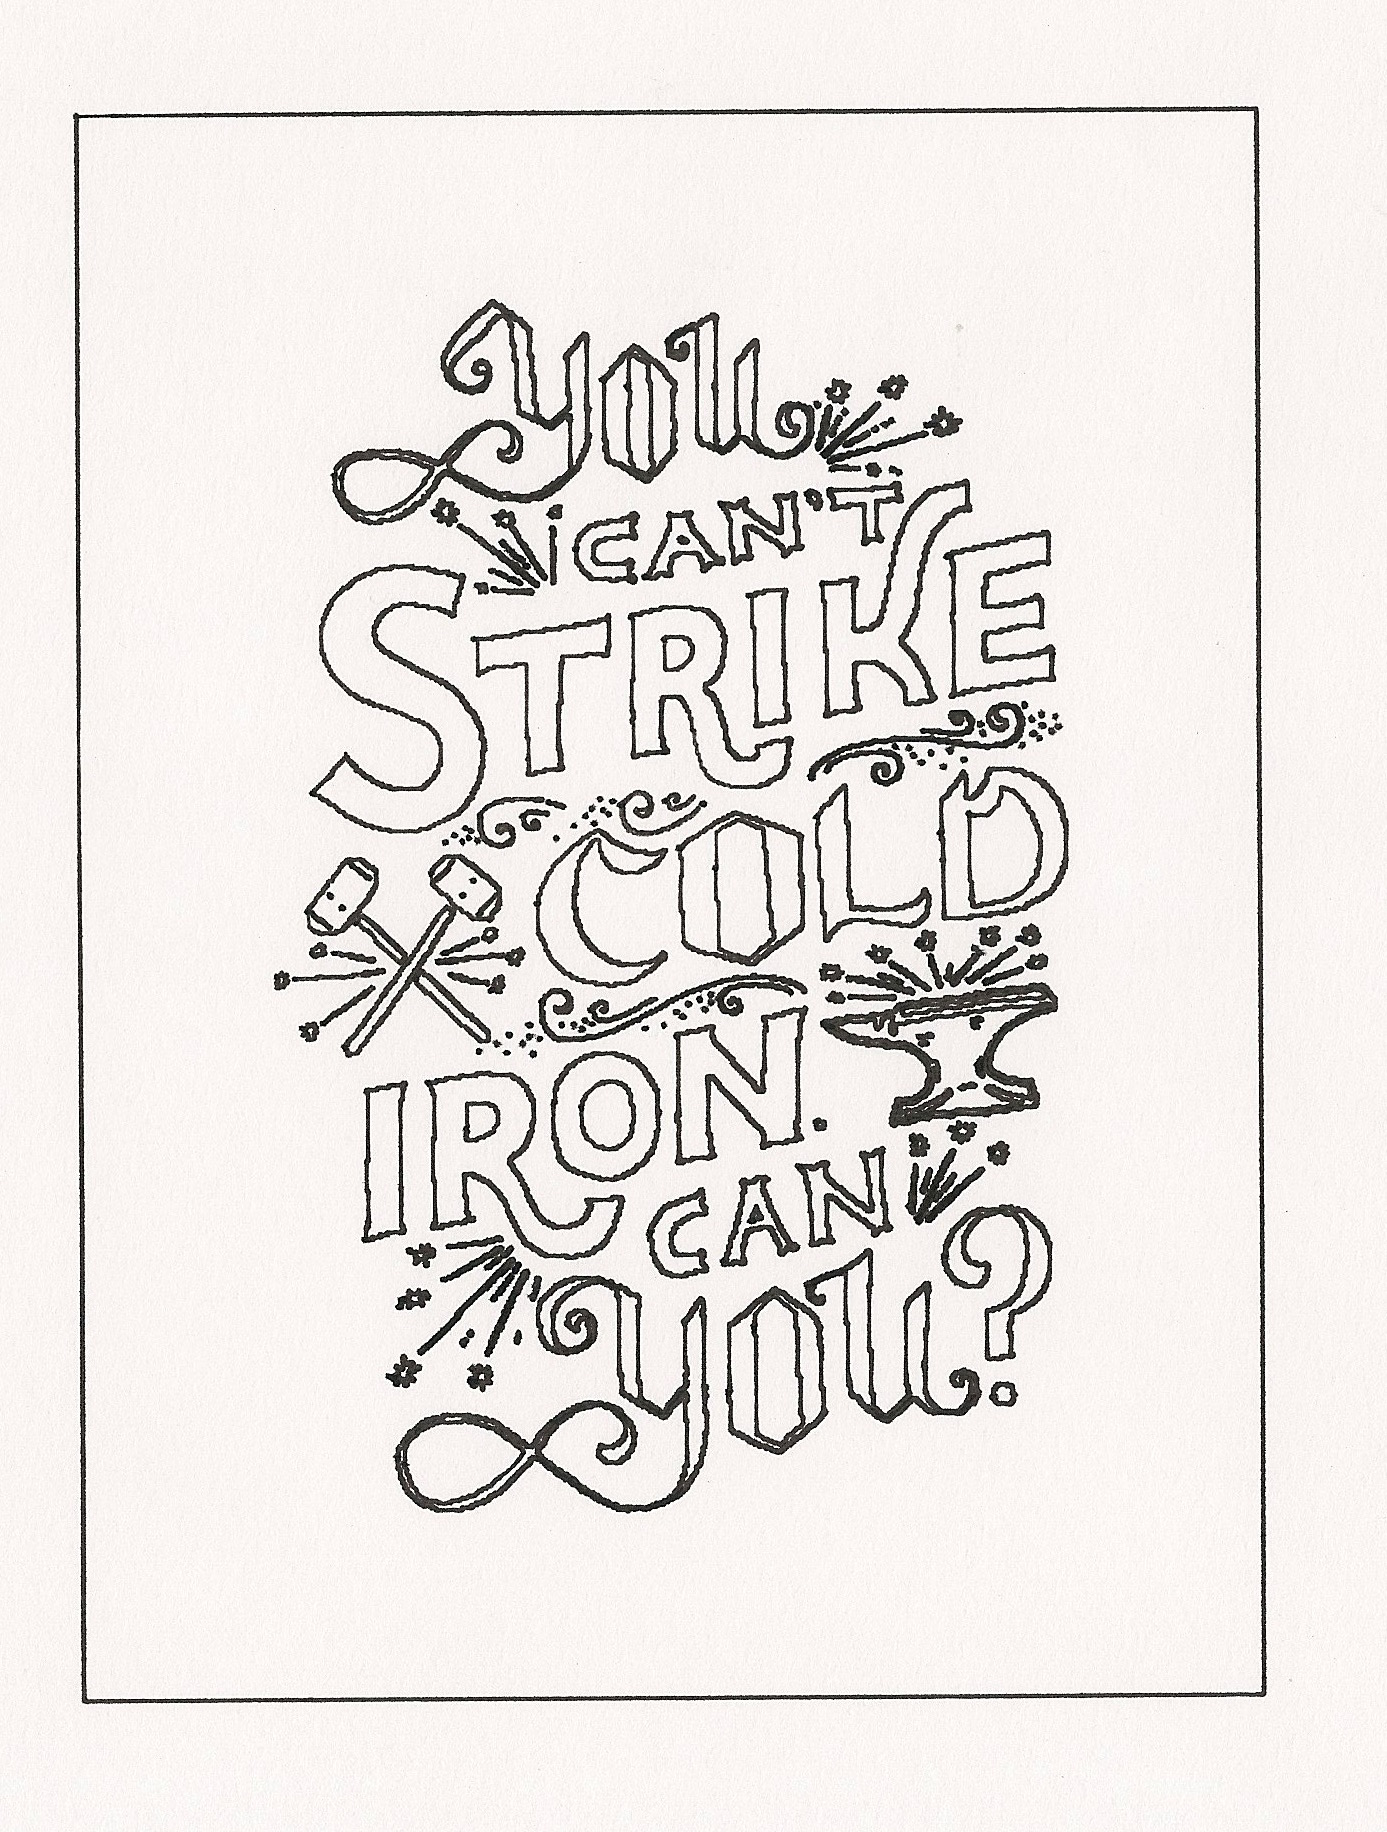 You
CAN'T
STRIKE
COLD
IRON.
CAN
YOU?